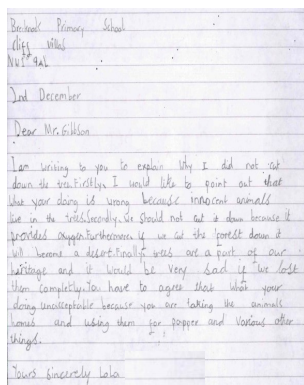 Brecknock Primary School
cliff villas
NW1 9AL
2nd December
Dear Mr. Gibbson
I am writing to you to explain why I did not cut
down the tree. Firstly, I would like to point out that
what your doing is wrong because innocent animals
live in the trees. Secondly, We should not cut it down because it
provides oxygen. Furthermore, if we cut the forest down it
will become a desert. Finally, trees are a part of our
heritage and it would be very sad if we lost
them completly. You have to agree that what your
doing unacceptable because you are taking the animals
homes and using them for papper and various other
things.
Yours sincerely Lola